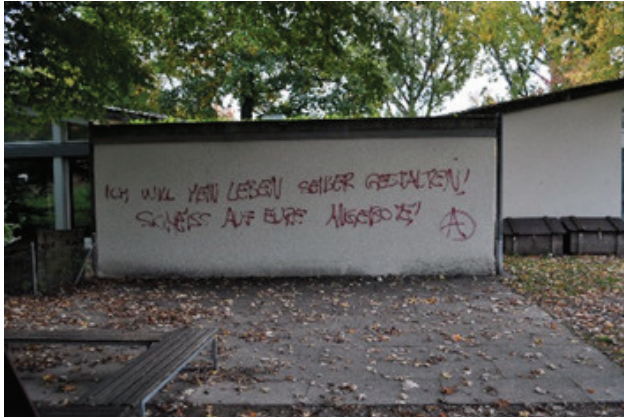 ICH WILL MEIN LEBEN SELBER GESTALTEN!
SCHEISS AUF EURE ANGEBOTE! Ⓐ